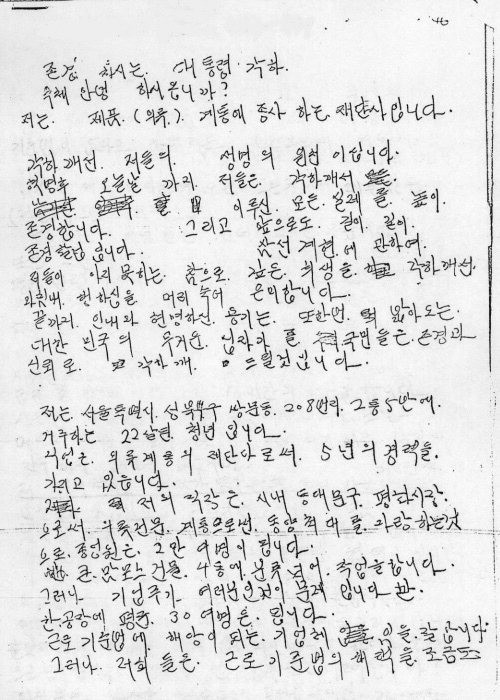 존경 하시는. 대통령 각하.
옥체 안녕 하시옵니까?
저는. 제품. (의류). 계통에 종사 하는. 재단사입니다.
각하께선. 저들의. 생명의 원천 이십니다.
혁명후 오늘날 까지 저들은. 각하께서
이루신. 모든. 일례를. 높이.
존경합니다. 그리고 앞으로도. 길이. 길이.
존경할겁니다. 삼선 계헌.에 관하여.
저들이 아지 못하는. 참으로. 깊은. 희생을. 각하께선.
행하심을. 머리 숙여 은미합니다.
끝까지. 인내와 현명하신. 용기는. 또한번. 밝아오는.
대한민국의 무거운. 십자가를 국민들은. 존경과
신뢰로. 각하께. 드릴것입니다.
저는. 서울특별시. 성북구 쌍문동. 208번지. 2통5반에.
거주하는 22살된. 청년입니다.
직업은. 의류계통의 재단사로서. 5년의경력을.
가지고 있읍니다.
저의 직장은. 시내 동대문구. 평화시장.
으로서. 의류전문. 계통으로선. 동양 최대를. 자랑하는것
으로. 종업원은. 2만 여명이 됩니다.
큰. 맘모스 건물. 4동에 분류되어. 작업을합니다.
그러나 기업주가. 여러분인것이 문제 입니다만.
한공장에 평균. 30여명은. 됩니다.
근로기준법에. 해당이 되는. 기업체 임을. 잘 압니다.
그러나. 저희 들은. 근로기준법의 혜택을. 조금도